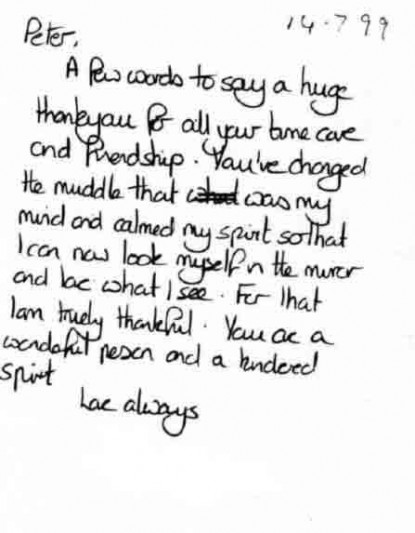 14.7 99
Peter,
A few words to say a huge
thankyou for all your time care
and friendship. You've changed
the muddle that was my
mind and calmed my spirit so that
I can now look myself in the mirror
and love what I see. For that
I am truely thankful. You are a
wonderful person and a kindered
spirit
Love always